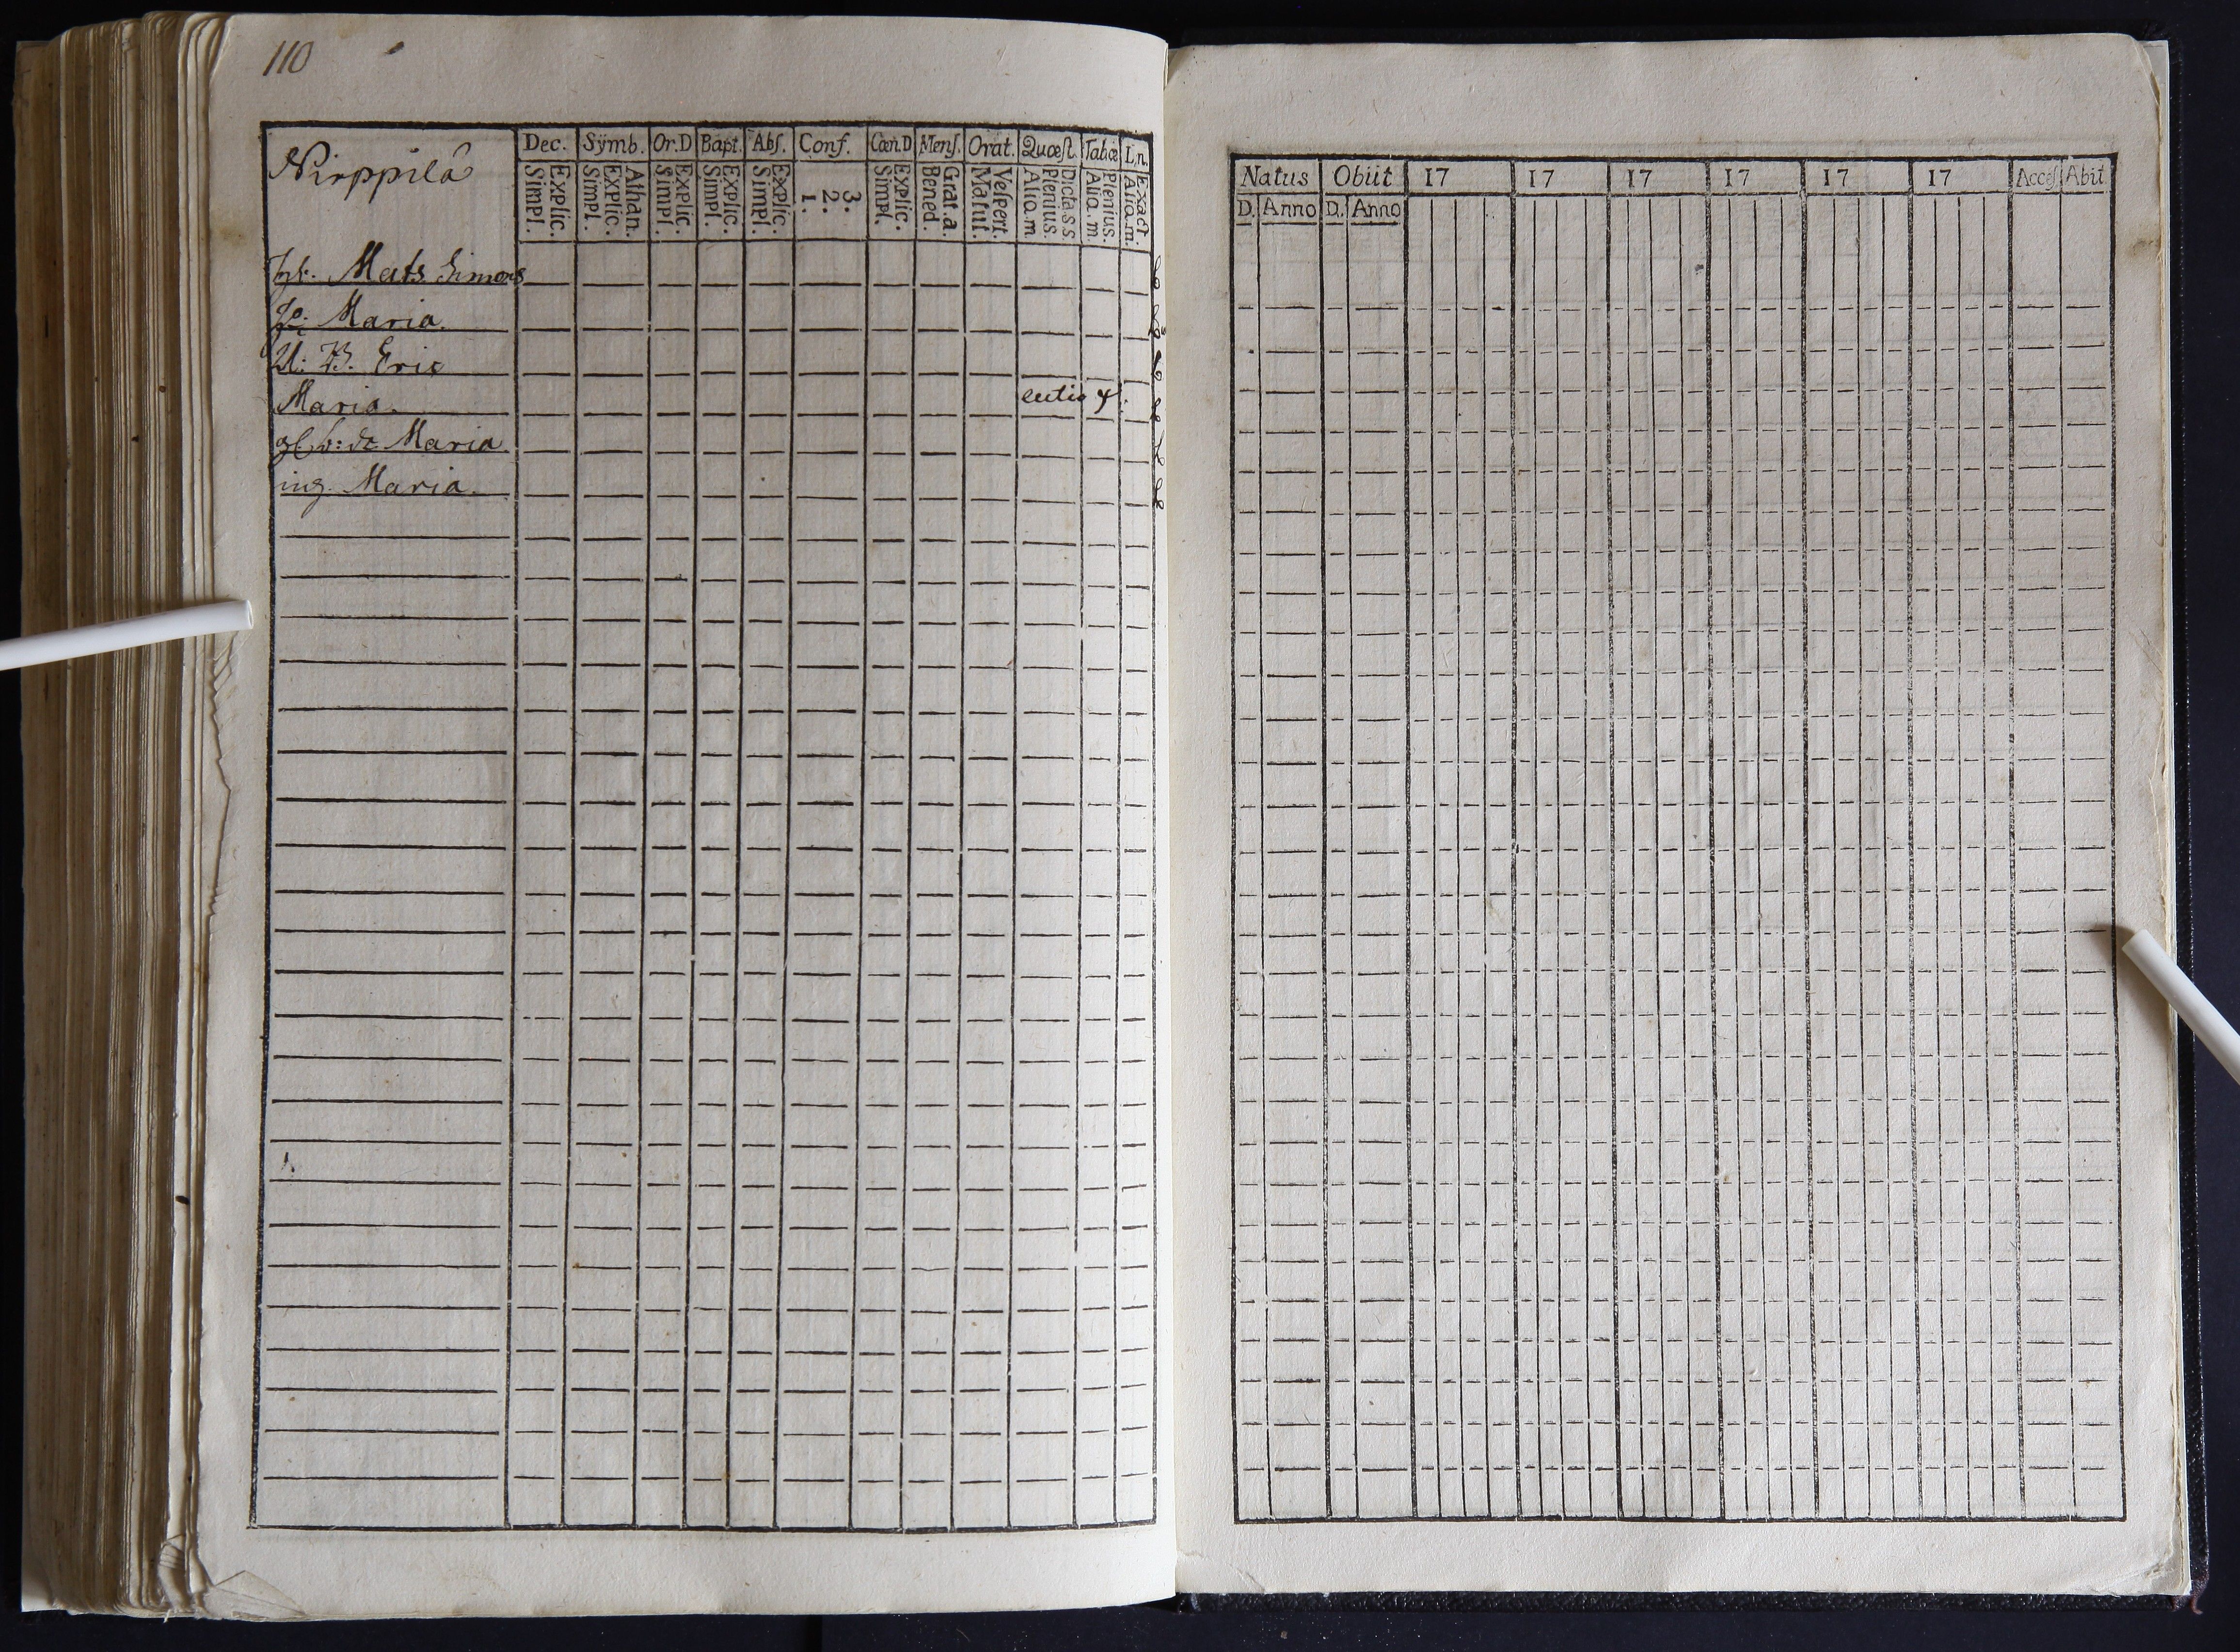 110
Nirppilä
Dec. Sÿmb. Or.D Bapt. Abſ. Conf. Cœn.D Menſ. Orat. Quœſt. Tabœ L.n.
Explic. Simpl.
Athan. Explic. Simpl.
Explic. Simpl.
Explic. Simpl.
Explic. Simpl.
3. 2. 1.
Explic. Simpl.
Grat.a. Bened.
Veſpert. Matut.
Dicta.s.s. Plenius. Aliq.m
Plenius. Aliq.m.
Exact. Aliq.m.
Mats Simons
Maria.
Eric
Maria.
Maria.
Maria.
Natus Obiit 17 17 17 17 17 17 Acceſ Abit
D. Anno D. Anno